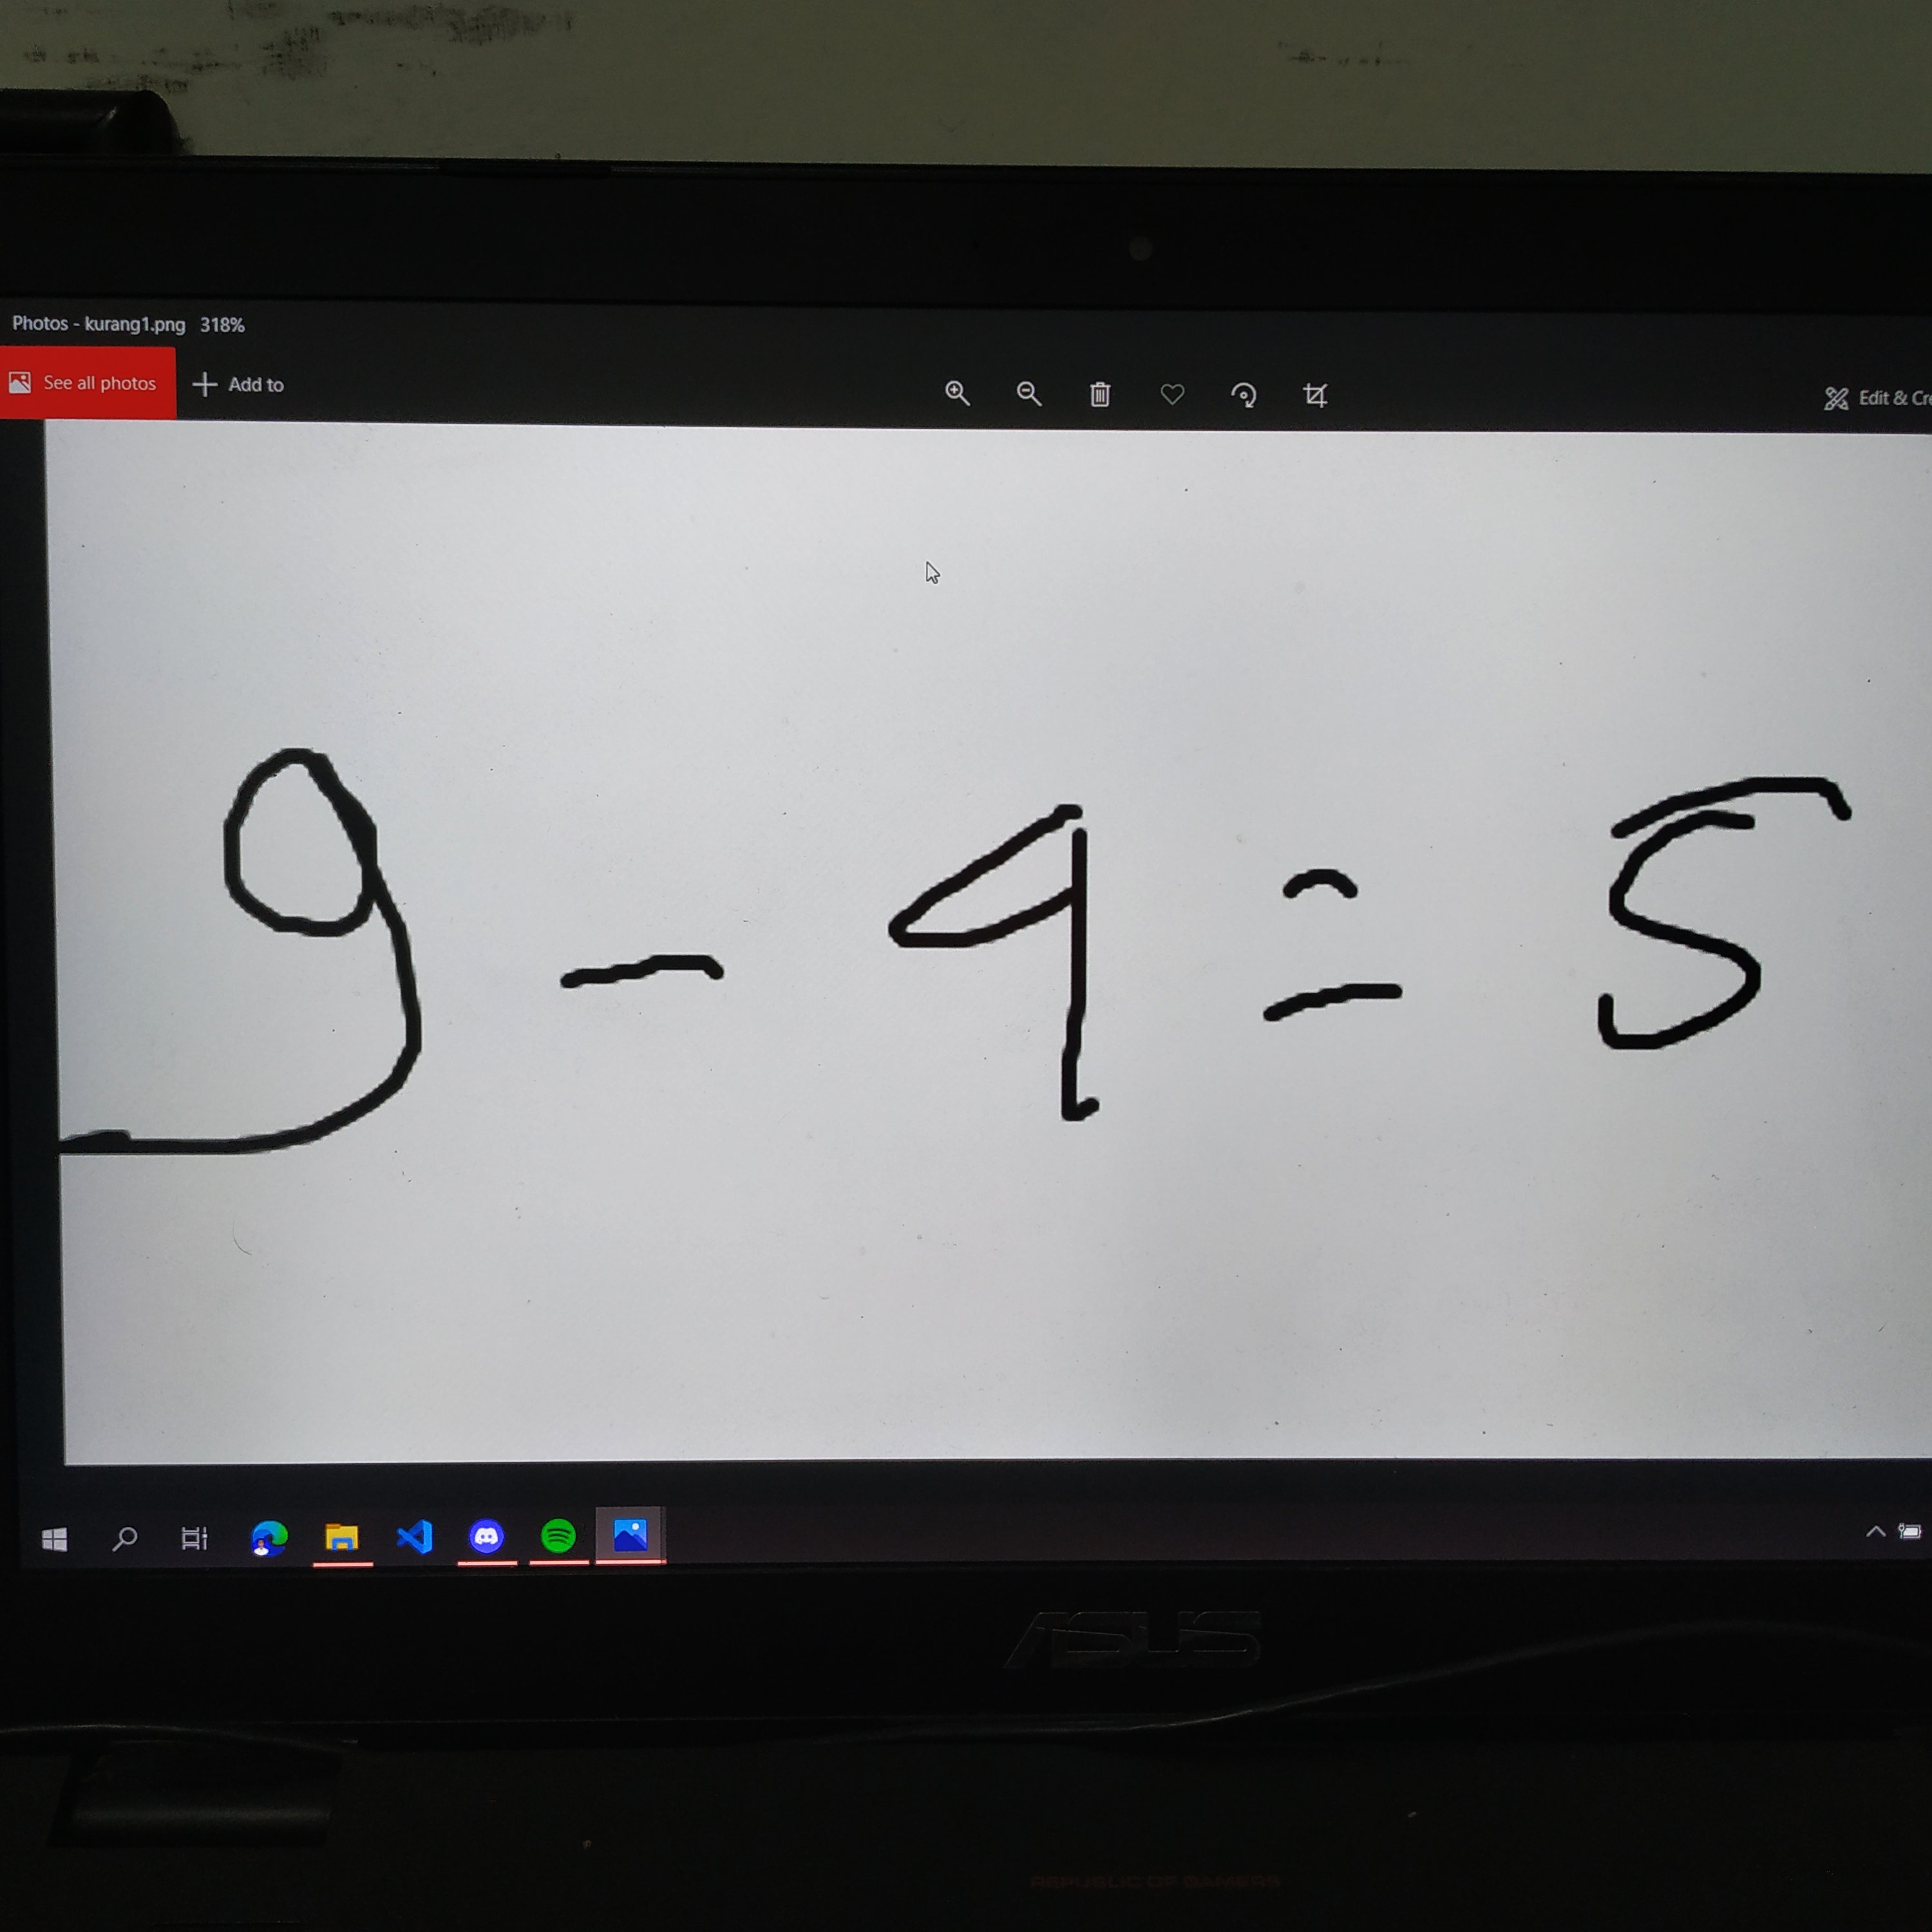 Photos - kurang1.png 318%
See all photos Add to Edit & Cr
9 - 4 = 5
ASUS
REPUBLIC OF GAMERS